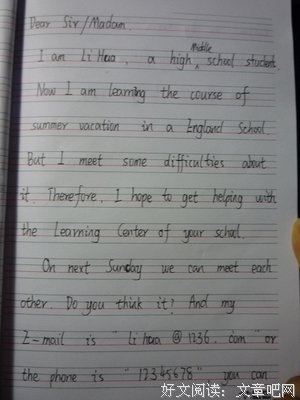 Dear Sir/Madam.
I am Li Hua, a high Middle school student
Now I am learning the course of
summer vacation in a England School.
But I meet some difficulties about
it. Therefore, I hope to get helping with
the Learning Center of your school.
On next Sunday we can meet each
other. Do you think it? And my
E-mail is "li hua @ 1236. com" or
the phone is "12345678" you can
好文阅读:文章吧网